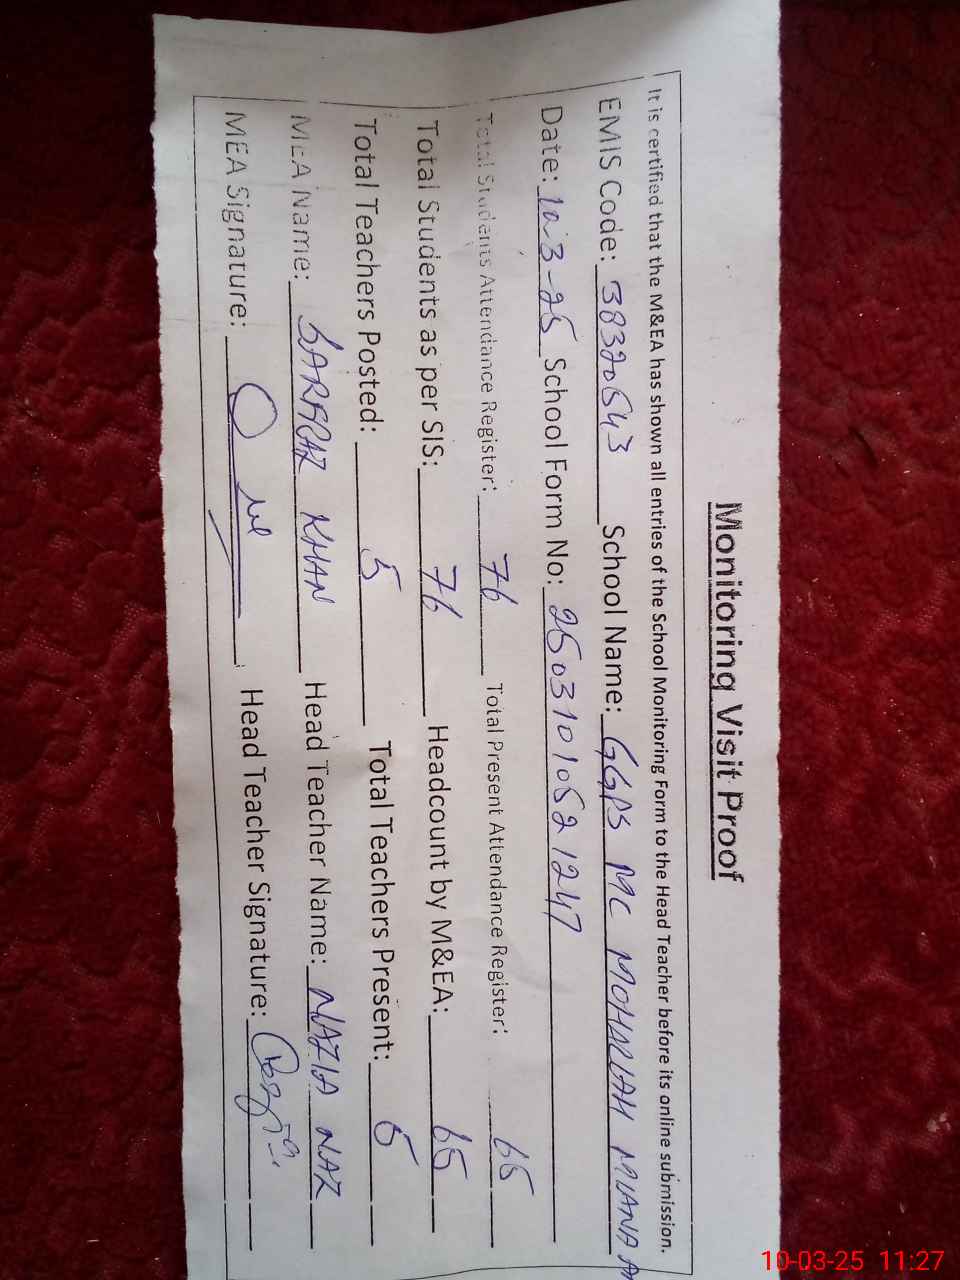 Monitoring Visit Proof
It is certified that the M&EA has shown all entries of the School Monitoring Form to the Head Teacher before its online submission.
EMIS Code: 38320543 School Name: GGPS MC MOHALLAH MIANA
Date: 10-3-25 School Form No: 25031010521247
Total Students Attendance Register: 76 Total Present Attendance Register: 65
Total Students as per SIS: 76 Headcount by M&EA: 65
Total Teachers Posted: 5 Total Teachers Present: 5
MEA Name: SARFRAZ KHAN Head Teacher Name: NAZIA NAZ
MEA Signature: Head Teacher Signature:
10-03-25 11:27